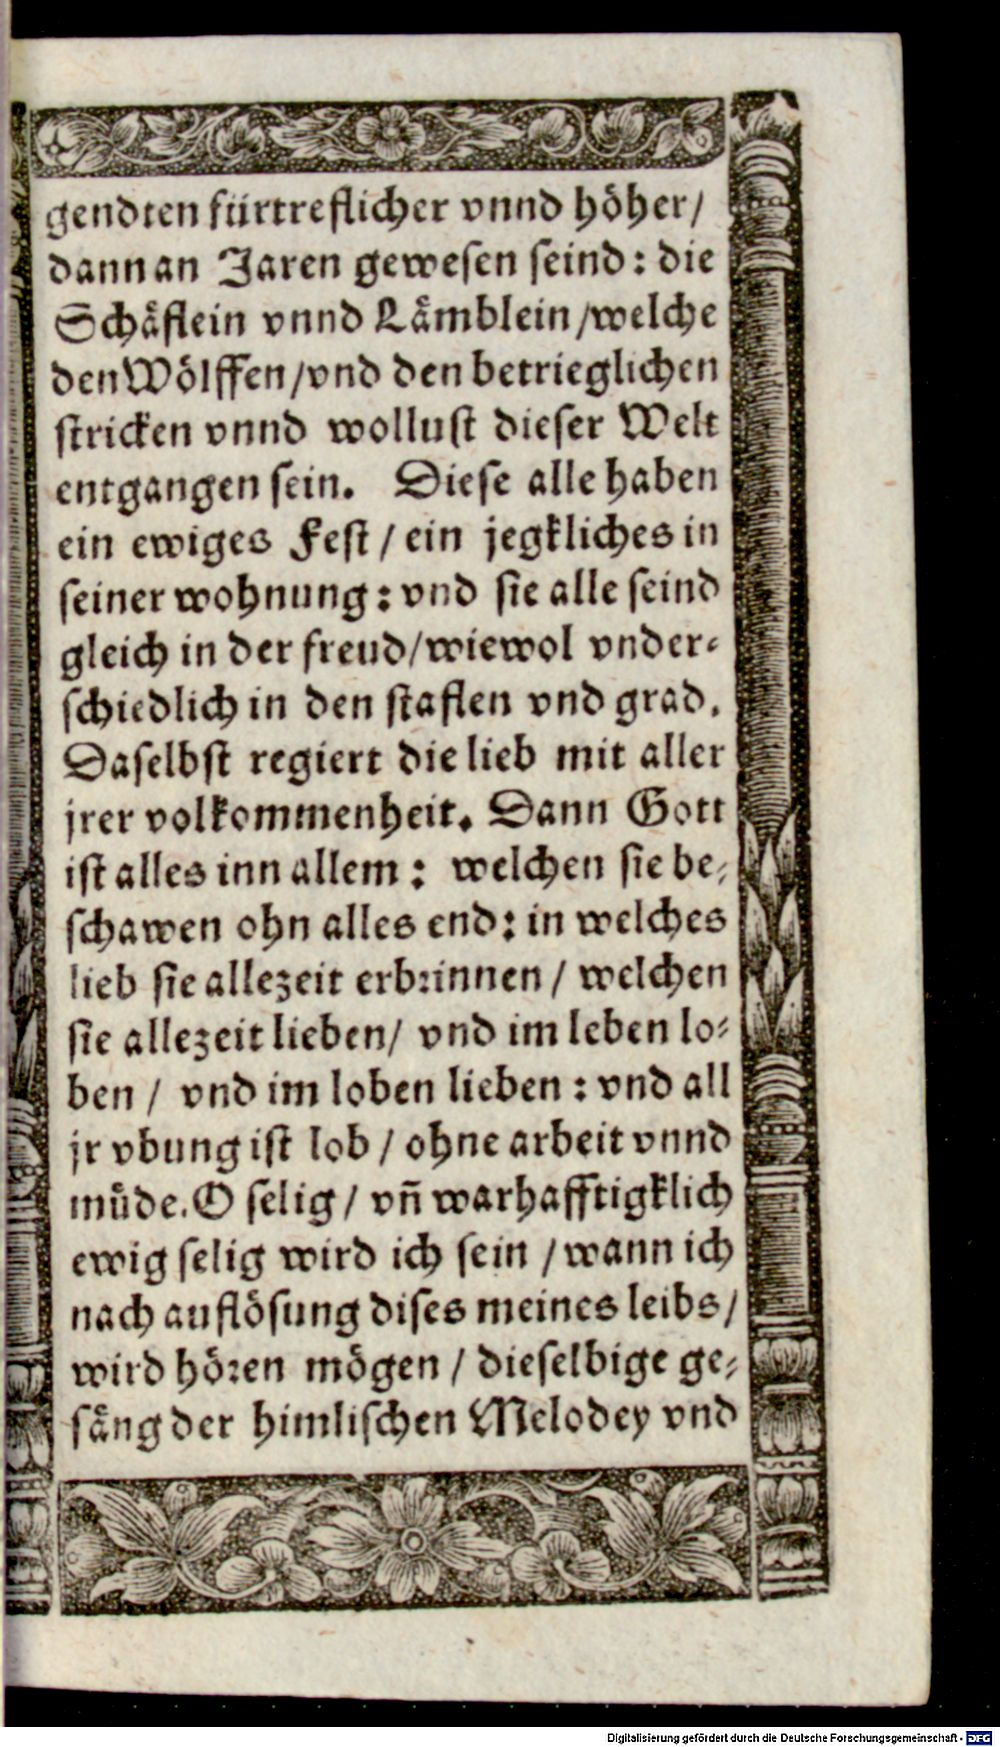 gendten fürtreflicher vnnd höher/
dann an Jaren gewesen seind: die
Schäflein vnnd Lämblein/welche
den Wölffen/vnd den betrieglichen
stricken vnnd wollust dieser Welt
entgangen sein. Diese alle haben
ein ewiges Fest / ein jegkliches in
seiner wohnung: vnd sie alle seind
gleich in der freud/wiewol vnder-
schiedlich in den staflen vnd grad.
Daselbst regiert die lieb mit aller
jrer volkommenheit. Dann Gott
ist alles inn allem: welchen sie be-
schawen ohn alles end: in welches
lieb sie allezeit erbrinnen / welchen
sie allezeit lieben/ vnd im leben lo-
ben / vnd im loben lieben: vnd all
jr vbung ist lob / ohne arbeit vnnd
müde. O selig / vñ warhafftigklich
ewig selig wird ich sein / wann ich
nach auflösung dises meines leibs/
wird hören mögen / dieselbige ge-
säng der himlischen Melodey vnd
Digitalisierung gefördert durch die Deutsche Forschungsgemeinschaft - DFG